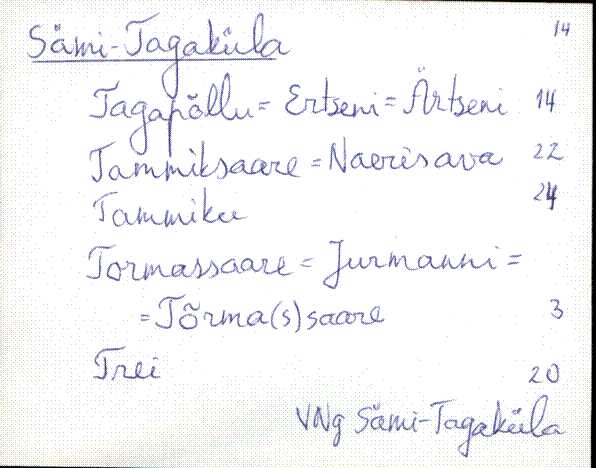 Sämi-Tagaküla 14
Tagapõllu = Ertseni = Ärtseni 14
Tammiksaare = Naerisava 22
Tammiku 24
Tormassaare = Jurmanni =
= Tõrma(s)saare 3
Trei 20
VNg Sämi-Tagaküla